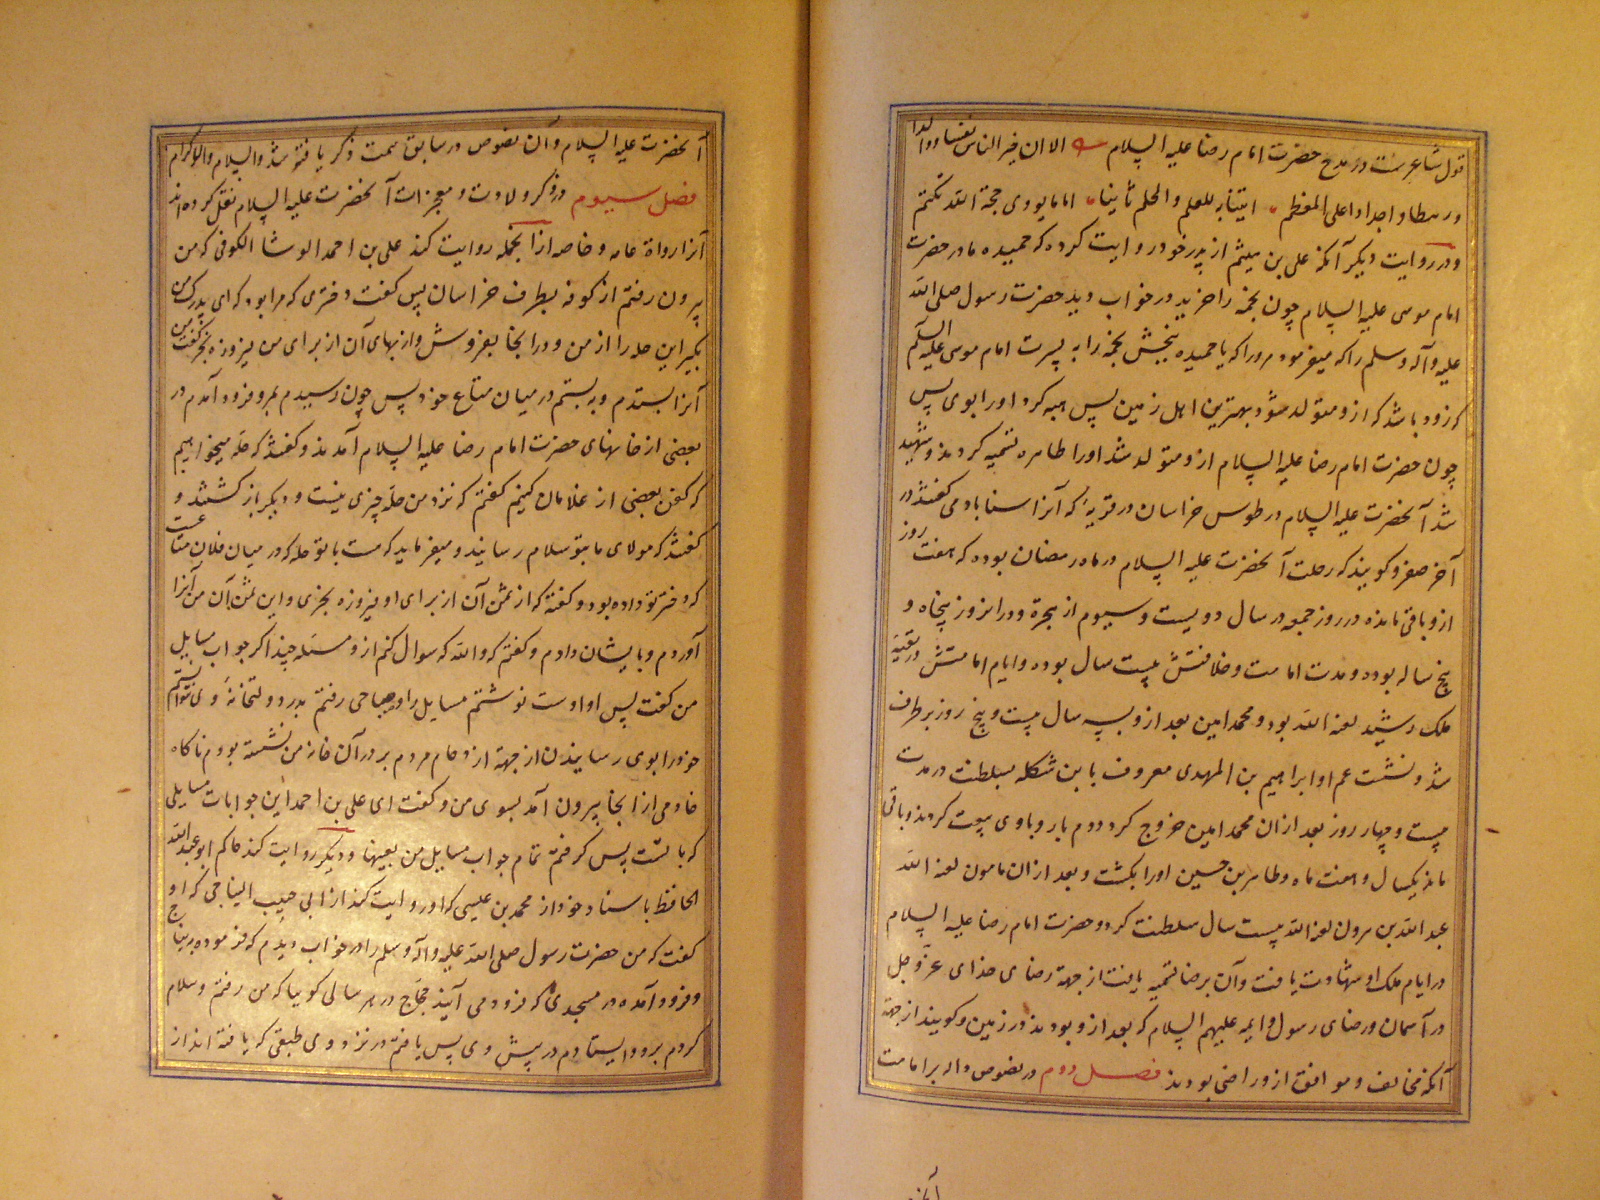 قول شاعر ست در مدح حضرت امام رضا علیه السلام الا ان خیر الناس نفسا و والدا
و رهطا و اجدادا علی المعظم اتینا به للعلم و الحلم ثامنا اماما یودی حجة الله تکتم
و در روایت دیگر آنکه علی بن میثم از پدر خود روایت کرده که حمیده مادر حضرت
امام موسی علیه السلام چون نجمه را خرید در خواب دید حضرت رسول صلی الله
علیه و آله و سلم را که میفرمود مر او را که یا حمیده ببخش نجمه را به پسرت امام موسی علیه السلام
که زود باشد که ازو متولد شود بهترین اهل زمین پس هبه کرد او را بوی پس
چون حضرت امام رضا علیه السلام ازو متولد شد او را طاهره تسمیه کردند و شهید
شد آنحضرت علیه السلام در طوس خراسان در قریهٔ که آنرا سناباد می گفتند در
آخر صفر و گویند که رحلت آنحضرت علیه السلام در ماه رمضان بوده که هفت روز
ازو باقی مانده در روز جمعه در سال دویست و سیوم از هجرة و در انروز پنجاه و
پنج ساله بوده و مدت امامت و خلافتش بیست سال بوده و ایام امامتش در بقیهٔ
ملک رشید لعنه الله بود و محمد امین بعد ازو سه سال و بیست و پنج روز برطرف
شد و نشست عم او ابراهیم بن المهدی معروف بابن شکله بسلطنت در مدت
بیست و چهار روز بعد ازان محمد امین خروج کرد دوم بار و با وی بیعت کردند و باقی
ماند یکسال و هفت ماه و طاهر بن حسین او را بکشت و بعد ازان مامون لعنه الله
عبد الله بن هرون لعنه الله بیست سال سلطنت کرد و حضرت امام رضا علیه السلام
در ایام ملک او شهادت یافت و آن برضا تسمیه یافت از جهة رضای خدای عز و جل
در آسمان و رضای رسول و ایمه علیهم السلام که بعد ازو بودند در زمین و گویند از جهة
آنکه مخالف و موافق ازو راضی بودند فصل دوم در نصوص داله بر امامت
آنحضرت علیه السلام و آن نصوص در سابق سمت ذکر یافته شد والسلام والاکرام
فصل سیوم در ذکر ولادت و معجزات آنحضرت علیه السلام نقل کرده اند
آنرا رواة عامه و خاصه از انجمله روایت کند علی بن احمد الوشا الکوفی که من
بیرون رفتم از کوفه بطرف خراسان پس گفت دختری که مرا بود که ای پدرک من
بگیر این حله را از من و در انجا بفروش و از بهای آن از برای من فیروزه بخر گفت من
آنرا بستدم و ببستم در میان متاع خود پس چون رسیدم بمرو فرود آمدم در
بعضی از خانهای حضرت امام رضا علیه السلام آمدند و گفتند که حله میخواهیم
که کفن بعضی از غلامان کنیم گفتم که نزد من حله چیزی نیست و دیگر باز گشتند و
گفتند که مولای ما بتو سلام رسانید و میفرماید که هست با تو حله که در میان فلان متاعست
که دختر تو داده بود و گفته که از ثمن آن از برای او فیروزه بخری و این ثمن آن من آنرا
آوردم و بایشان دادم و گفتم که والله که سوال کنم ازو مسئله چند اگر جواب مسایل
من گفت پس او اوست نوشتم مسایل را و صباحی رفتم بدر دولتخانه و نمی توانستم
خود را بوی رسانیدن از جهة ازدحام مردم بر در آن خانه من نشسته بودم ناگاه
خادمی از انجا بیرون آمد بسوی من و گفت ای علی بن احمد این جوابات مسایلی
که با تست پس گرفتم تمام جواب مسایل من بعینها و دیگر روایت کند حاکم ابو عبد الله
الحافظ باسناد خود از محمد بن عیسی که او روایت کند از ابی حبیب النباجی که او
گفت که من حضرت رسول صلی الله علیه و آله و سلم را در خواب دیدم که فرموده بنباج
و فرود آمده در مسجدی که فرود می آیند حجاج در هر سالی گوییا که من رفتم و سلام
کردم برو و ایستادم در پیش وی پس یافتم در نزد وی طبقی که یافته اند از